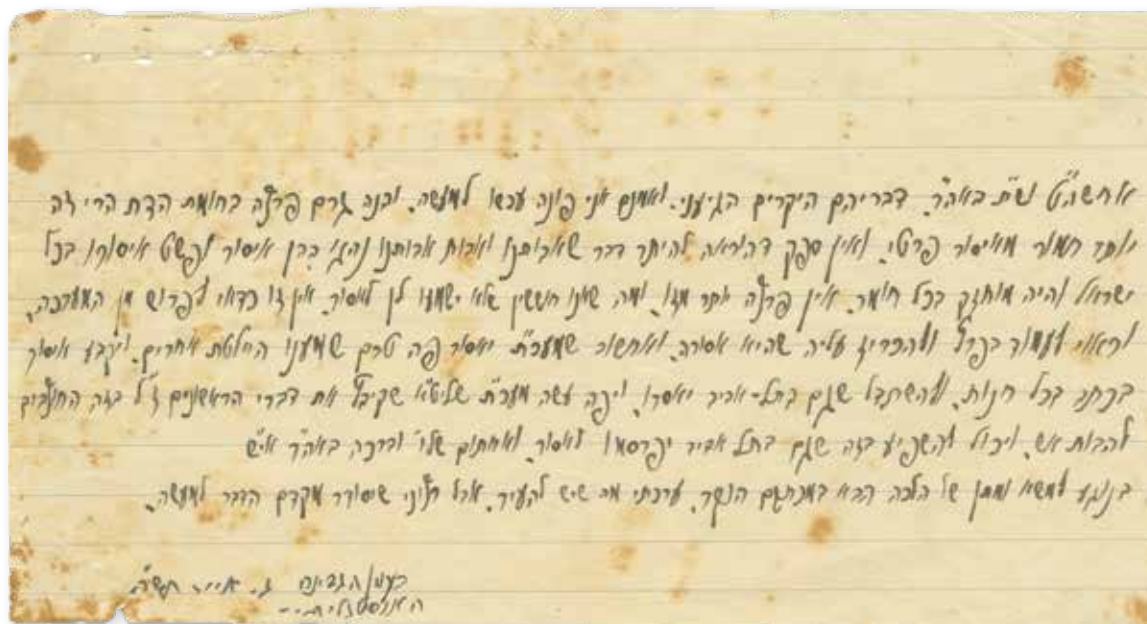 אחשה"ט וש"ת באה"ר. דבריהם היקרים הגיעני. ואמנם אני פונה עכשו למעשה. ובנה גרם פרצה בחומת הדת הרי זה
יותר חמור מאיסור פרטי. ואין ספק דהוראה להיתר דבר שאבותנו ואבות אבותנו נהגו בהן איסור ונפשט איסורו בכל
ישראל והיה מוחזק בכל חומר. אין פרצה יותר מזו. ומה שאנו חוששין שלא ישמעו לן לאסור. אין זו כדאי לפרוש מן המערכה.
וראוי לעמוד בפרץ ולהכריז עליה שהיא אסורה. ואחשוב שמערכ"ת יאסור פה טרם שמענו החלטת אחרים. ויקבע איסור
בכתב בכל חנות. ולהשתדל שגם בתל-אביב יאסרו. ויפה עשה מערכ"ת שליט"א שקיבץ את דברי הראשונים ז"ל בזה החוצבים
להבות אש. ויכול להשפיע בזה שגם בתל אביב יפרסמו לאסור. ואחתום שלו' וברכה באה"ר אי"ש
בנוגע למשא ומתן של הלכה הבא במכתבם הנשגב. ערכתי מה שיש להעיר. אבל רצוני שיסודר מקדם הדבר למעשה.
בענין הגבינה ג' אייר תש"ה